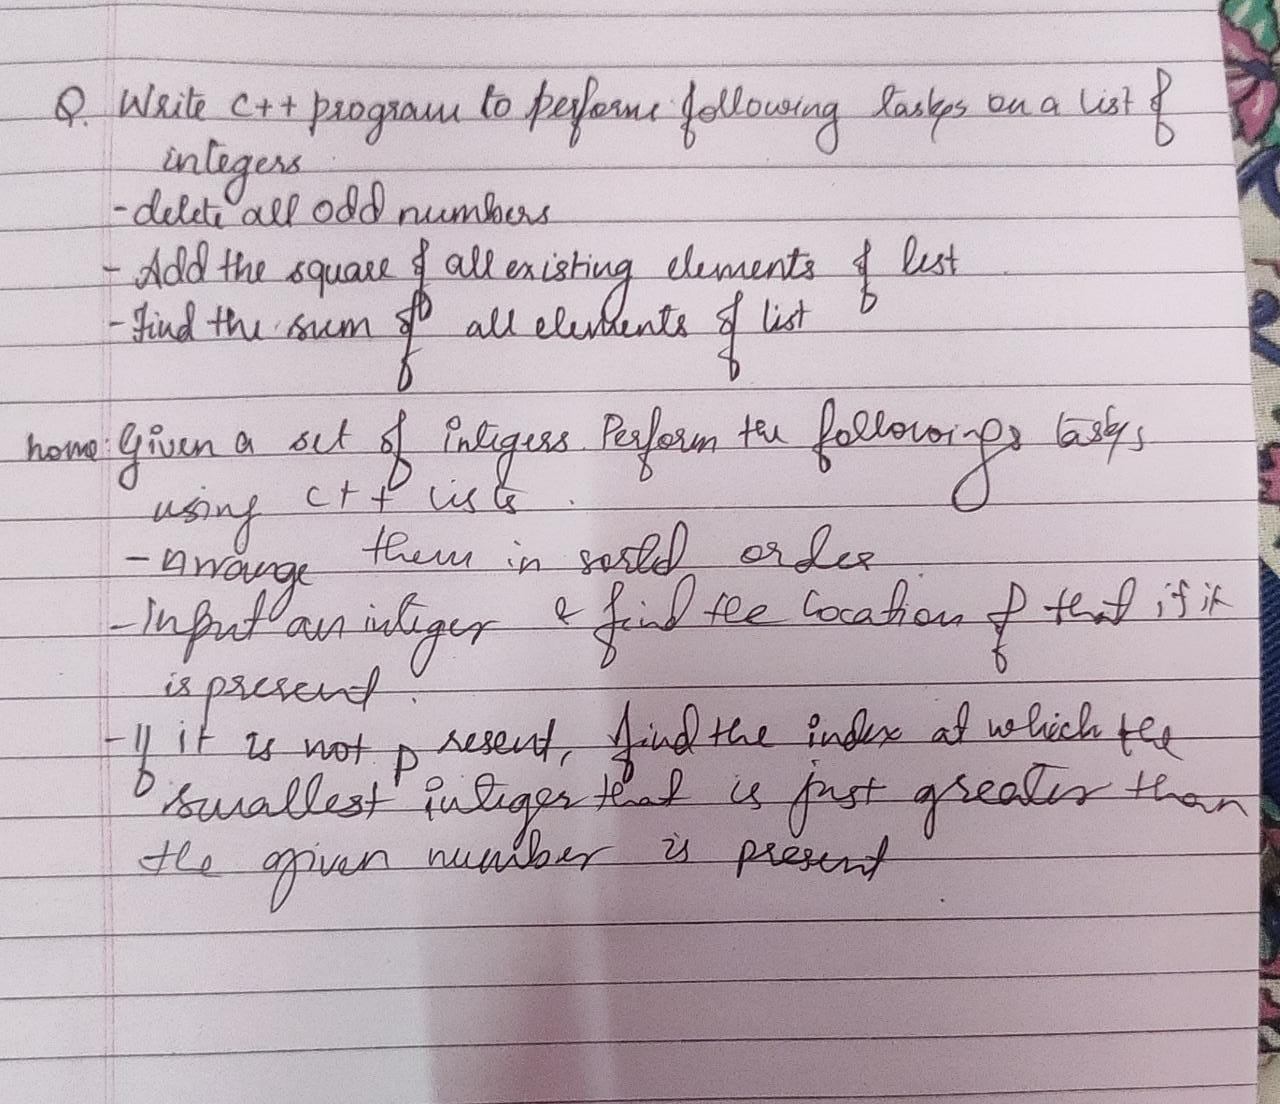 Q. Write C++ program to perform following tasks on a list of
integers
- delete all odd numbers
- Add the square of all existing elements of list
- Find the sum of all elements of list
home: Given a set of integers. Perform the followings tasks
using C++ lists.
- Arrange them in sorted order
- Input an integer & find the location of that if it
is present.
- If it is not present, find the index at which the
smallest integer that is just greater than
the given number is present